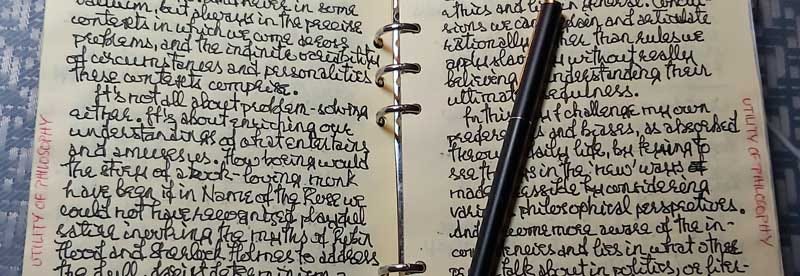 vacuum, but always in the precise
contexts in which we come across
problems, and the infinite variability
of circumstances and personalities
these contexts comprise.
It's not all about problem-solving
either. It's about enriching our
understandings of what entertains
and amuses us. How boring would
the story of a book-loving monk
have been if in Name of the Rose we
could not have recognised playful
satire invoking the myths of Robin
Hood and Sherlock Holmes to address
UTILITY OF PHILOSOPHY
sions we can and articulate
rationally rather than rules we
apply without really
believing understanding their
ultimate usefulness.
In this I challenge my own
preferences and biases, as absorbed
through daily life, by trying to
see things in the 'new' ways
made possible by considering
various philosophical perspectives.
And become more aware of the in-
consistencies and lies in what other
talk about in politics, or
UTILITY OF PHILOSOPHY